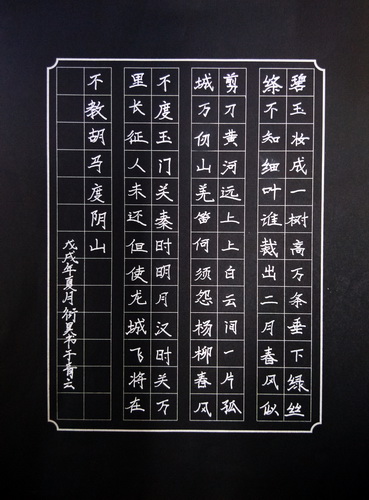 碧玉妆成一树高万条垂下绿丝
绦不知细叶谁裁出二月春风似
剪刀黄河远上上白云间一片孤
城万仞山羌笛何须怨杨柳春风
不度玉门关秦时明月汉时关万
里长征人未还但使龙城飞将在
不教胡马度阴山
戊戌年夏月衍昊书于青云